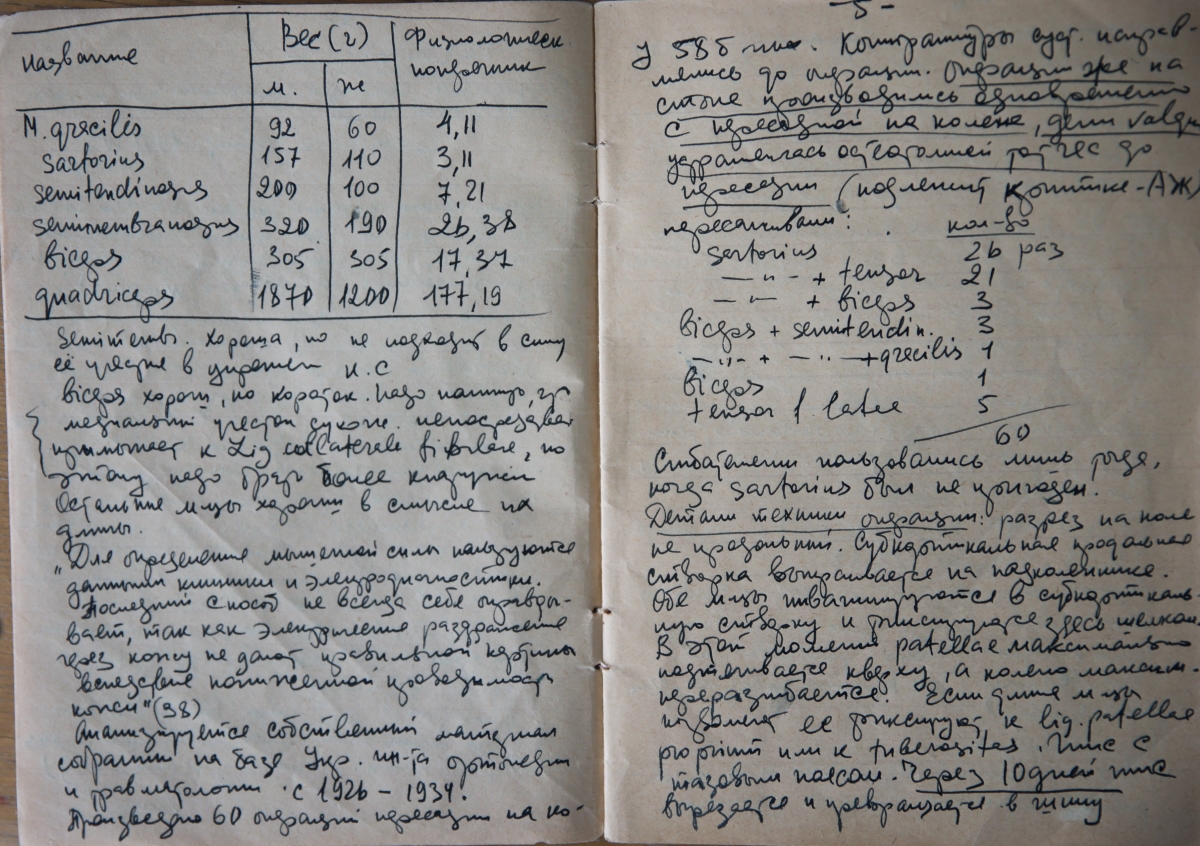 название Вес (г) Физиологическ. поперечник
м. ж
M. gracilis 92 60 4,11
sartorius 157 110 3,11
semitendinosus 200 100 7,21
semimembranosus 320 190 26,38
biceps 305 305 17,37
quadriceps 1870 1200 177,19
хороша, но не подходит в силу
её участие в к.с
biceps хорош, но короток. Надо помнить,
участок сухож. непосредствен
примыкает к Lig collaterale fibulare, по
этому надо брать более кнаружи
Остальные м-цы хороши в смысле их
длины.
"Для определения мышечной силы пользуются
данными клиники и электродиагностики.
Последний способ не всегда себя оправды-
вает, так как электрические раздражения
через кожу не дают правильной картины
вследствие пониженной проводимость
кожи" (38)
Анализируется собственный материал
собранный на базе Укр. ин-та ортопедии
и травматологии с 1926 – 1934.
Произведено 60 операций пересадки на ко-
- 5 -
У 58 б-ных. Контрактуры суст. исправ-
лялись до операции. Операции же на
стопе производились одновременно
с пересадкой на колене, genu valgum
устранялась остеотомией до
пересадки (подлежит критике - АЖ)
пересаживали: кол-во
sartorius 26 раз
— " - + tensor 21
— " — + biceps 3
biceps + semitendin. 3
— " — + — " — + gracilis 1
biceps 1
tensor f. latae 5
60
Сгибателями пользовались лишь тогда,
когда sartorius был не пригоден.
Детали техники операции: разрез на коле
не продольный. Субкортикальная продольная
створка выкраивается на надколеннике.
Обе м-цы инвагинируются в субкортикаль-
ную створку и фиксируется здесь шелком.
В этот момент patellae максимально
подтягивается кверху, а колено максим.
переразгибается. Если длина м-цы
позволяет ее фиксируют к lig. patellae
proprium или к tuberositas. Гипс с
тазовым поясом. Через 10 дней гипс
вырезается и превращается в шину